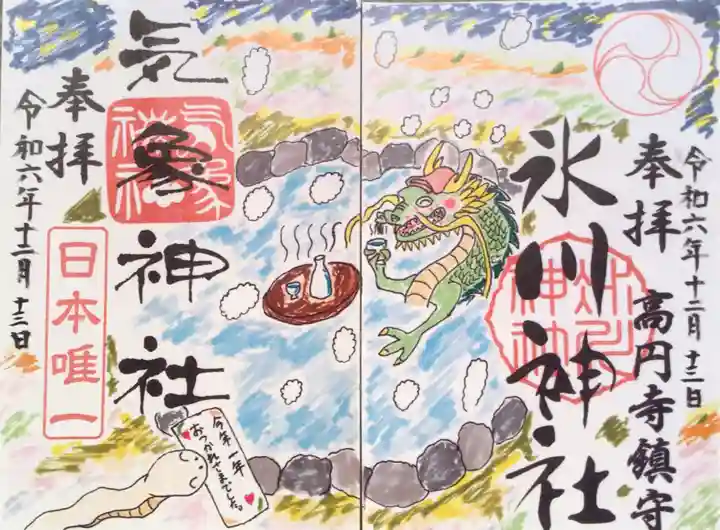 奉拝
令和六年十二月十二日
高円寺鎮守
氷川神社
氷川神社
気象神社
気象神社
奉拝
令和六年十二月十三日
日本唯一
今年一年
おつかれさまでした。